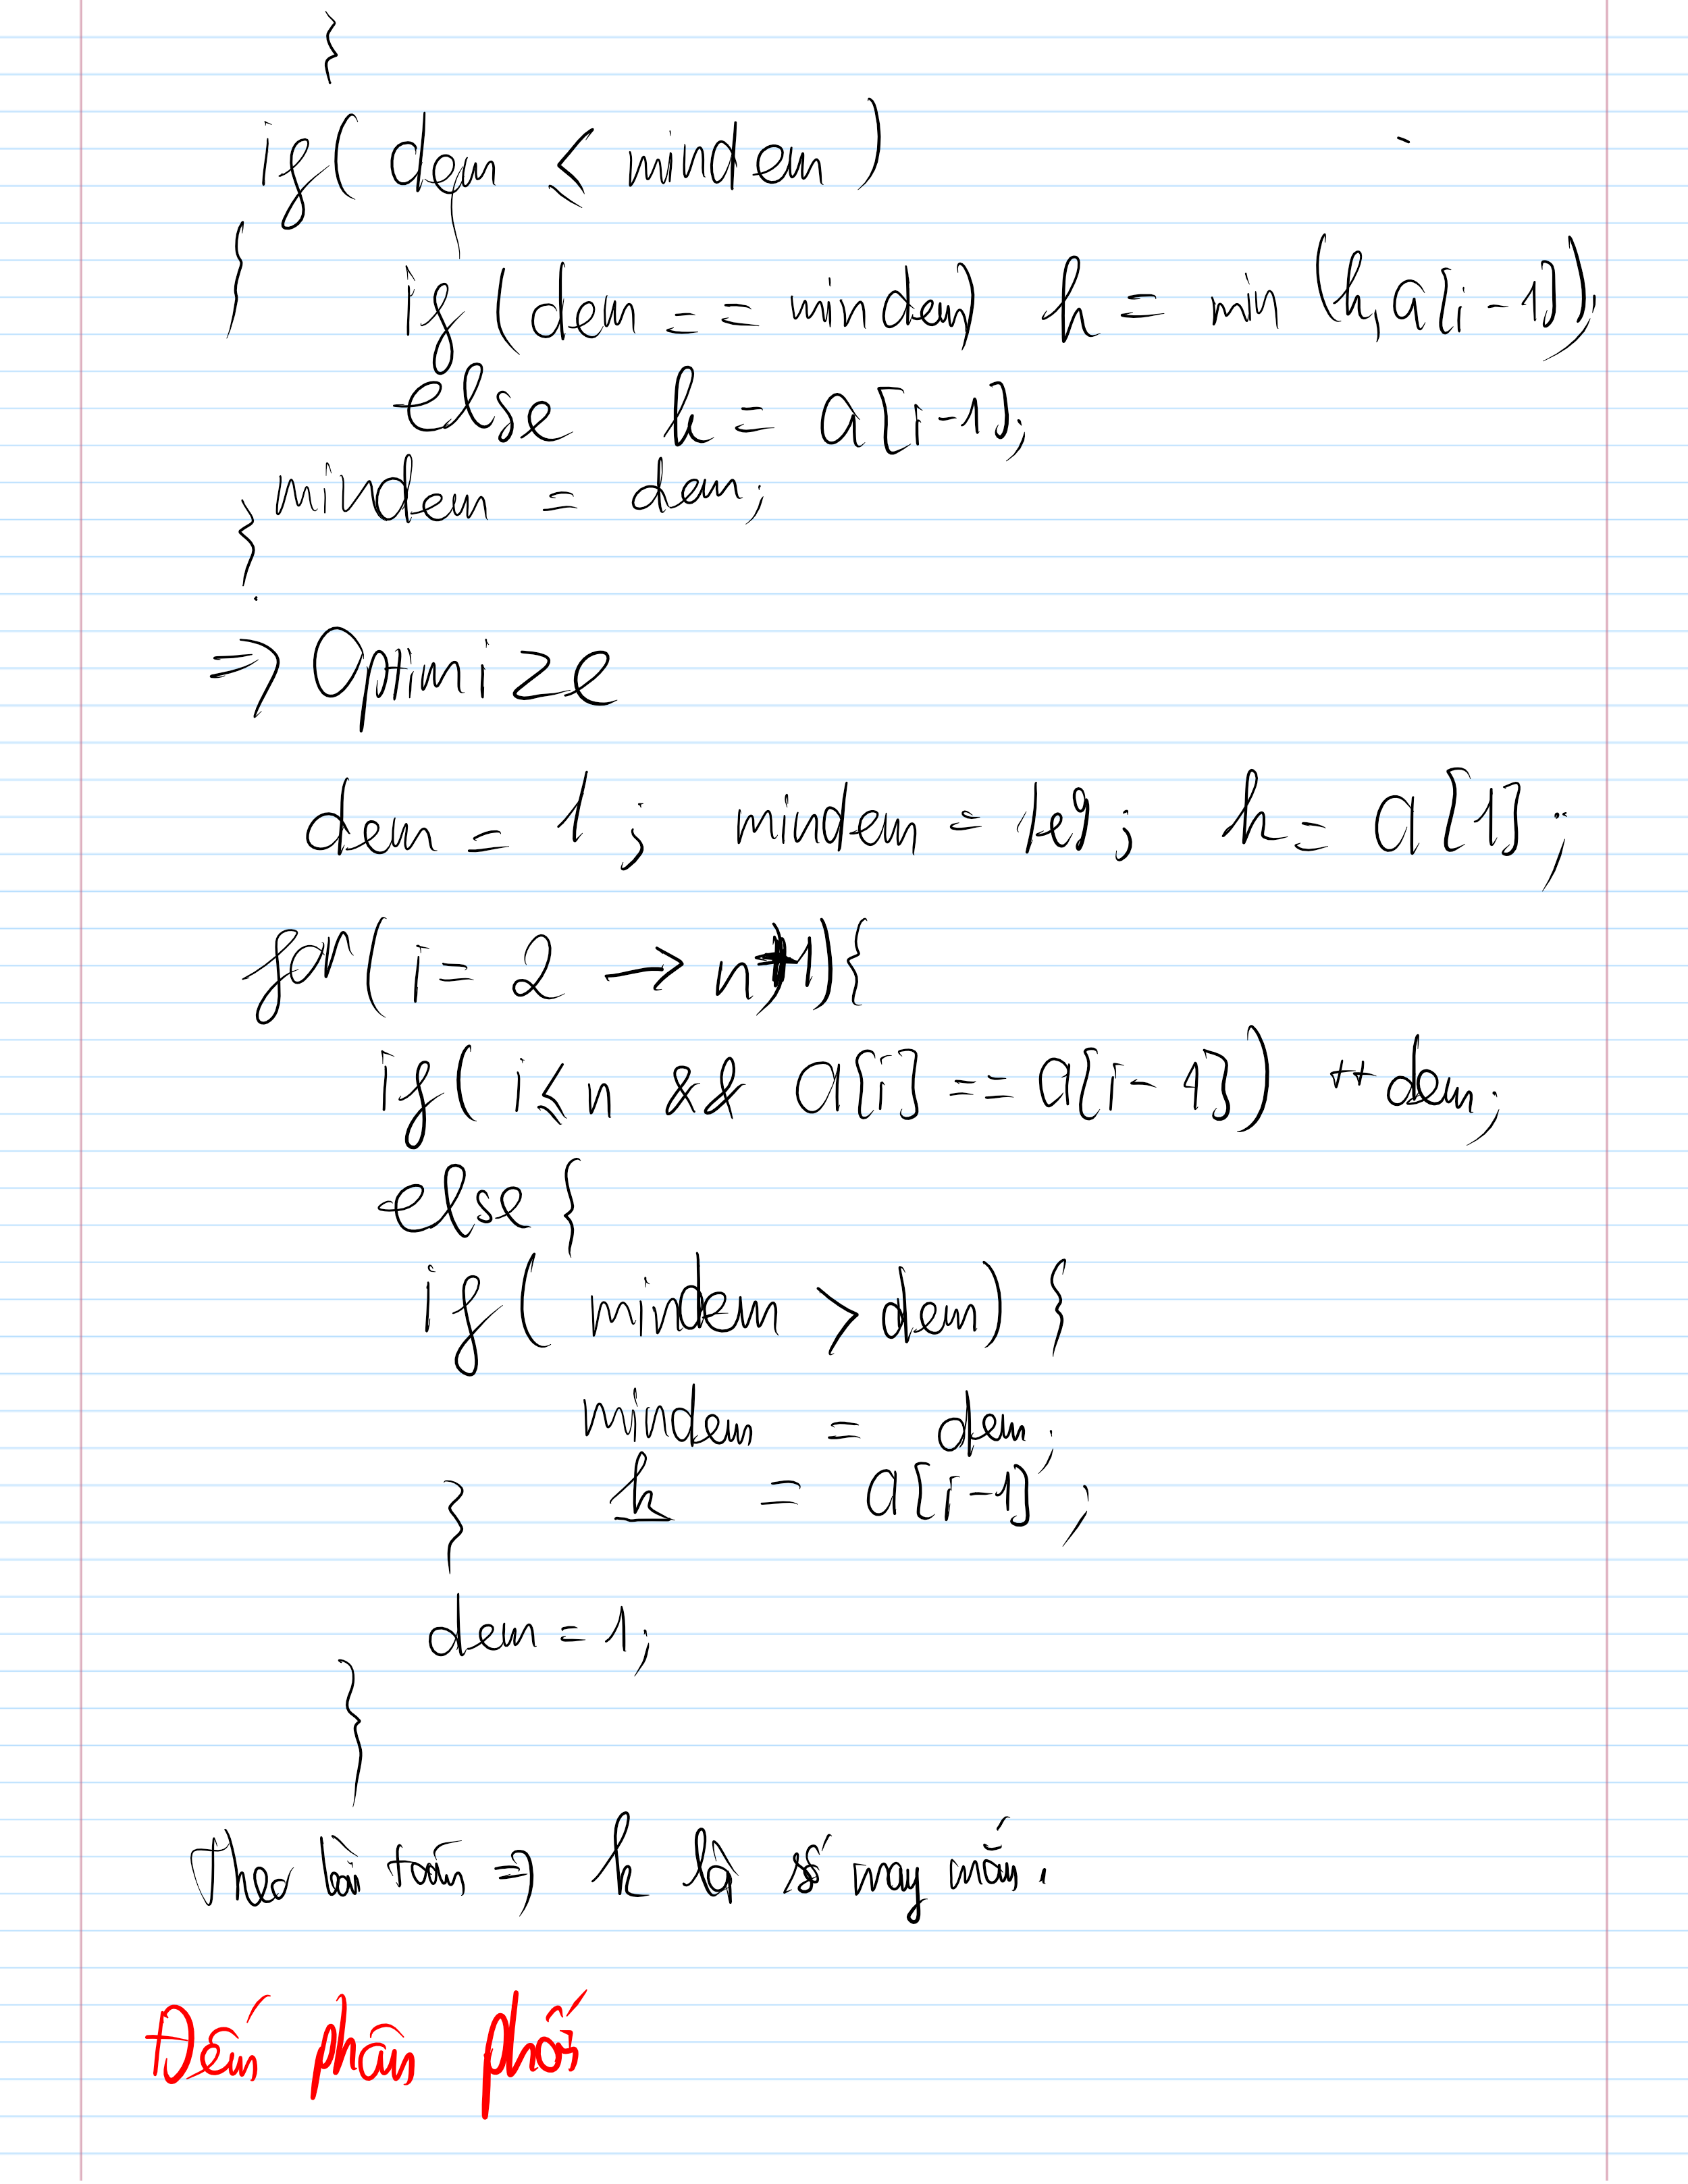 }
if( dem ≤ mindem )
{
if (dem == mindem) h = min (h, a[i-1]);
else h = a[i-1];
mindem = dem;
}
=> Optimize
dem = 1 ; mindem = 1e9 ; h = a[1] ;
for( i = 2 → n+1){
if( i ≤ n && a[i] == a[i-1] ) ++dem;
else {
if( mindem > dem) {
mindem = dem;
} h = a[i-1] ;
dem = 1;
}
Theo bài toán => h là số may mắn.
Đếm phân phối